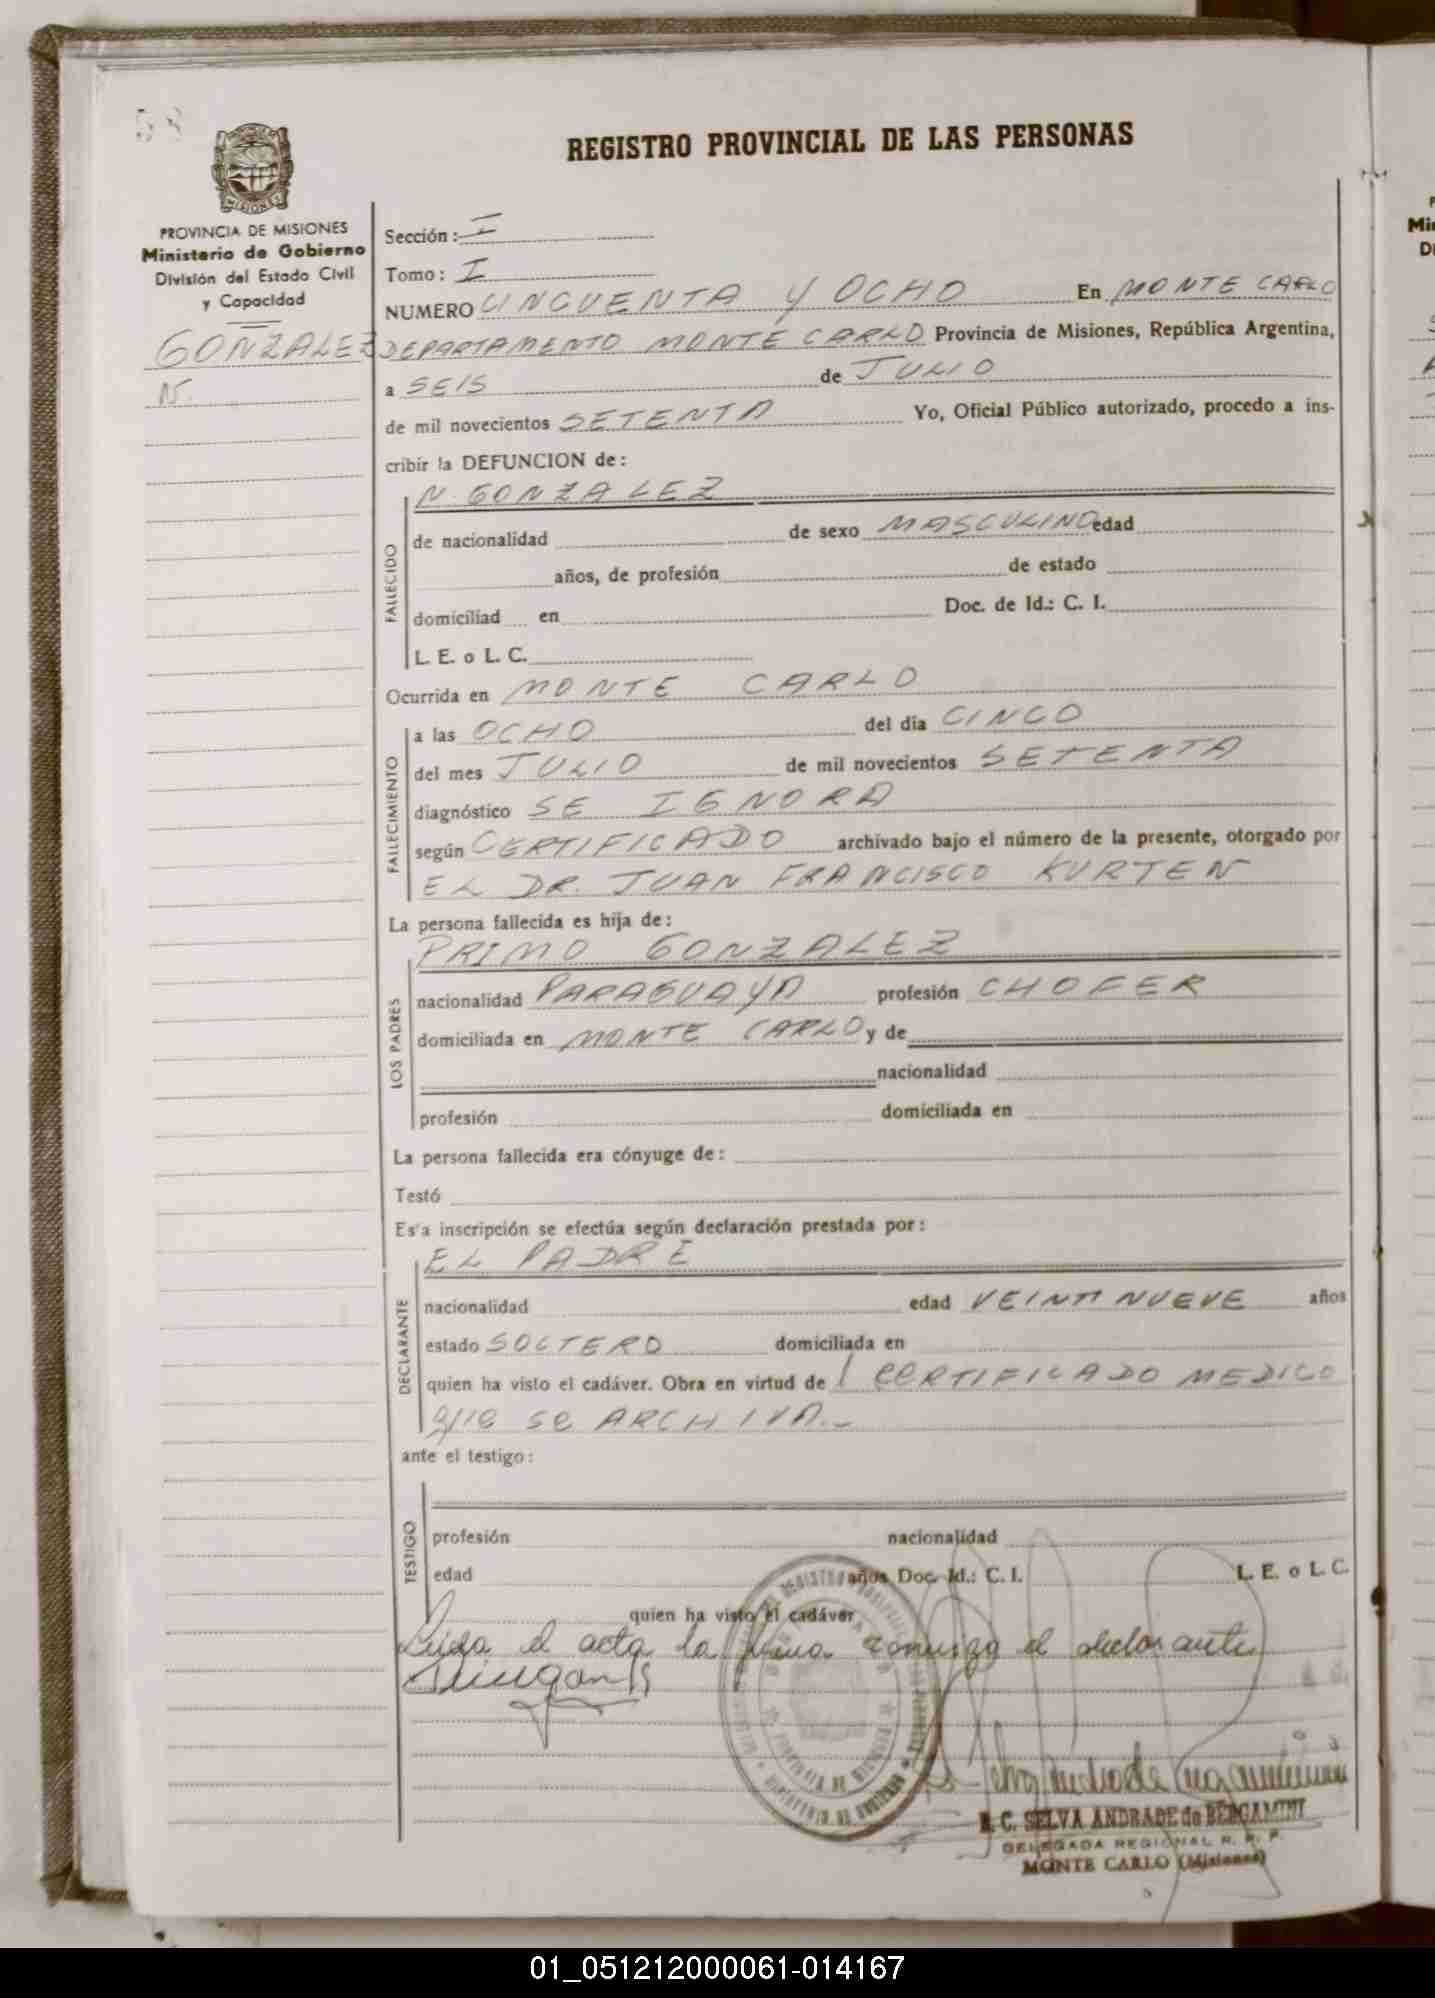 58
REGISTRO PROVINCIAL DE LAS PERSONAS
MISIONES
PROVINCIA DE MISIONES
Ministerio de Gobierno
División del Estado Civil
y Capacidad
GONZALEZ
N.
Sección: I
Tomo: I
NUMERO CINCUENTA Y OCHO En MONTE CARLO
DEPARTAMENTO MONTE CARLO Provincia de Misiones, República Argentina,
a SEIS de JULIO
de mil novecientos SETENTA Yo, Oficial Público autorizado, procedo a ins-
cribir la DEFUNCION de:
N. GONZALEZ
FALLECIDO
de nacionalidad de sexo MASCULINO edad
años, de profesión de estado
domiciliad en Doc. de Id.: C. I.
L. E. o L. C.
Ocurrida en MONTE CARLO
FALLECIMIENTO
a las OCHO del día CINCO
del mes JULIO de mil novecientos SETENTA
diagnóstico SE IGNORA
según CERTIFICADO archivado bajo el número de la presente, otorgado por
EL DR. JUAN FRANCISCO KURTEN
La persona fallecida es hija de:
PRIMO GONZALEZ
LOS PADRES
nacionalidad PARAGUAYA profesión CHOFER
domiciliada en MONTE CARLO y de
nacionalidad
profesión domiciliada en
La persona fallecida era cónyuge de:
Testó
Es'a inscripción se efectúa según declaración prestada por:
EL PADRE
DECLARANTE
nacionalidad edad VEINTINUEVE años
estado SOLTERO domiciliada en
quien ha visto el cadáver. Obra en virtud de CERTIFICADO MEDICO
que se ARCHIVA.-
ante el testigo:
TESTIGO
profesión nacionalidad
edad años Doc. Id.: C. I. L. E. o L. C.
quien ha visto el cadáver
Leida el acta la firma conmigo el declarante
R. C. SELVA ANDRADE de BERGAMINI
DELEGADA REGIONAL R. P. P.
MONTE CARLO (Misiones)
01_051212000061-014167